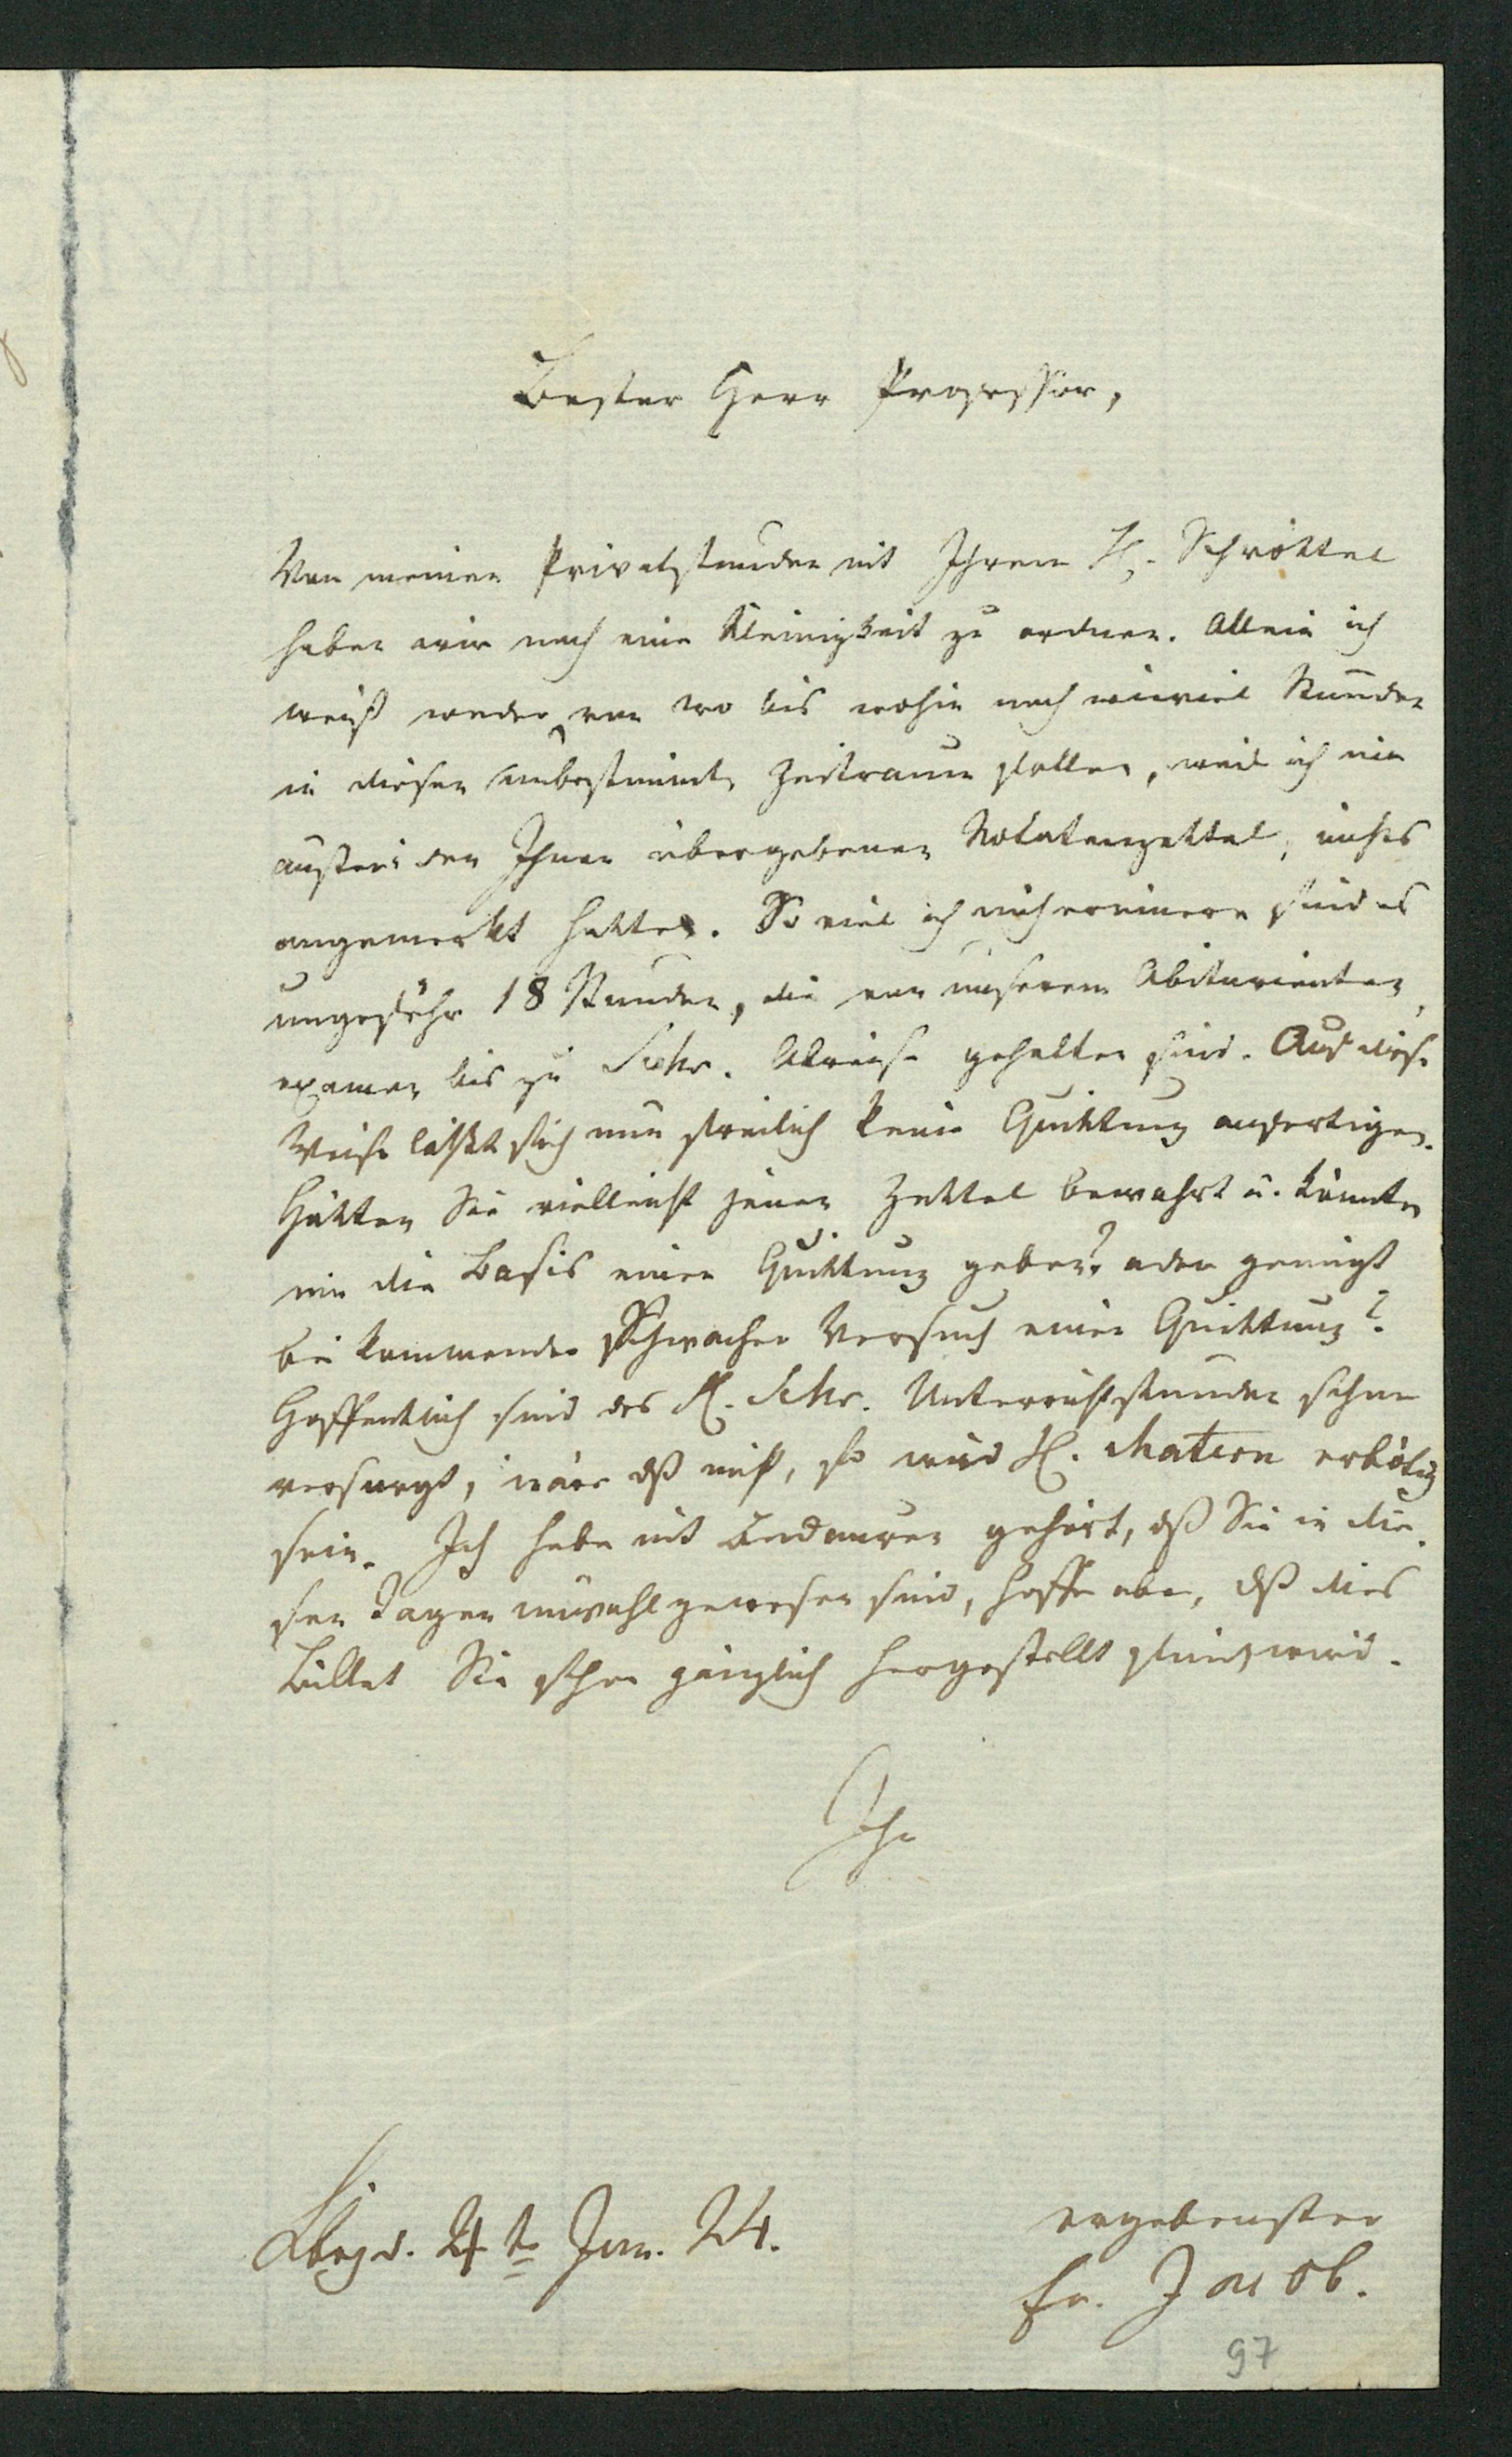 Bester Herr Professor,
Von meinen Privatstunden mit Ihrem H. Schröttel
haben wir noch eine Kleinigkeit zu ordnen. Allein ich
weiß weder von wo bis wohin noch wieviel Stunden
in diesen unbestimmten Zeitraum fallen, weil ich mir
außer den Ihnen übergebenen Notatenzettel, nichts
angemerkt hatte. So viel ich mich erinnere sind es
ungefähr 18 Stunden, die von unserem Abiturienten
examen bis zu Schr. Abreise gehalten sind. Auf diese
Weise läßt sich nun freilich keine Quittung anfertigen.
Hätten Sie vielleicht jenen Zettel bewahrt u. könnten
mir die Basis einer Quittung geben? oder genügt
bei kommender schwacher Versuch einer Quittung?
Hoffentlich sind des H. Schr. Unterrichtsstunden schon
versorgt, wäre dß nicht, so wird H. Matern erbötig
sein. Ich habe mit Bedauren gehört, dß Sie in die
sen Tagen unwohl gewesen sind, hoffe aber, dß dies
Billet Sie schon gänzlich hergestellt finden wird.
Ihr
ergebenster
Lbg d. 4t Jan. 24.
Fr. Jacob.
97